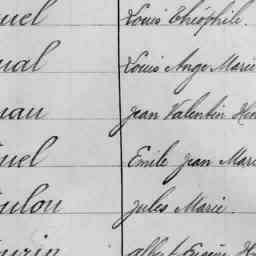 uel Louis Théophile.
ual Louis Ange Marie
uau Jean Valentin Hen
uel Emile Jean Mari
ulou Jules Marie.
urin Albert Eugène H